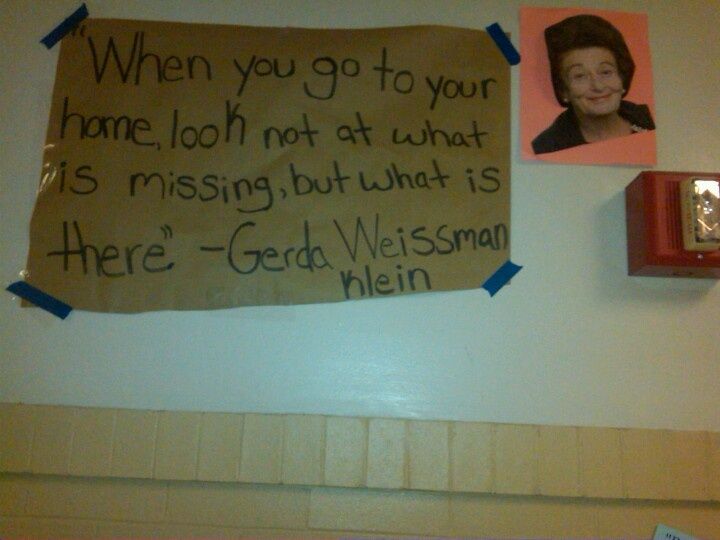 "When you go to your
home, look not at what
is missing, but what is
there" -Gerda Weissman
Klein